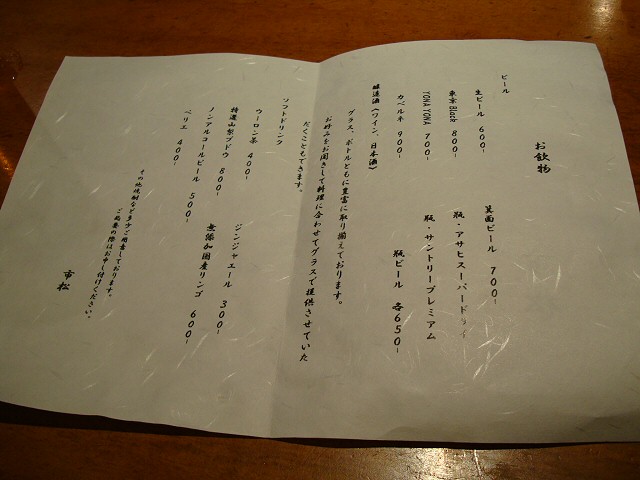 お飲物
ビール
生ビール 600-
箕面ビール 700-
東京Black 800-
瓶・アサヒスーパードライ
YONA YONA 700-
瓶・サントリープレミアム
カベルネ 900-
瓶ビール 各650-
醸造酒(ワイン、日本酒)
グラス、ボトルともに豊富に取り揃えております。
お好みをお聞きして料理に合わせてグラスで提供させていた
だくこともできます。
ソフトドリンク
ウーロン茶 400-
ジンジャエール 300-
特選山梨ブドウ 800-
無添加国産リンゴ 600-
ノンアルコールビール 500-
ペリエ 400-
その他焼酎など多少ご用意しております。
ご希望の際はお申し付けください。
市松